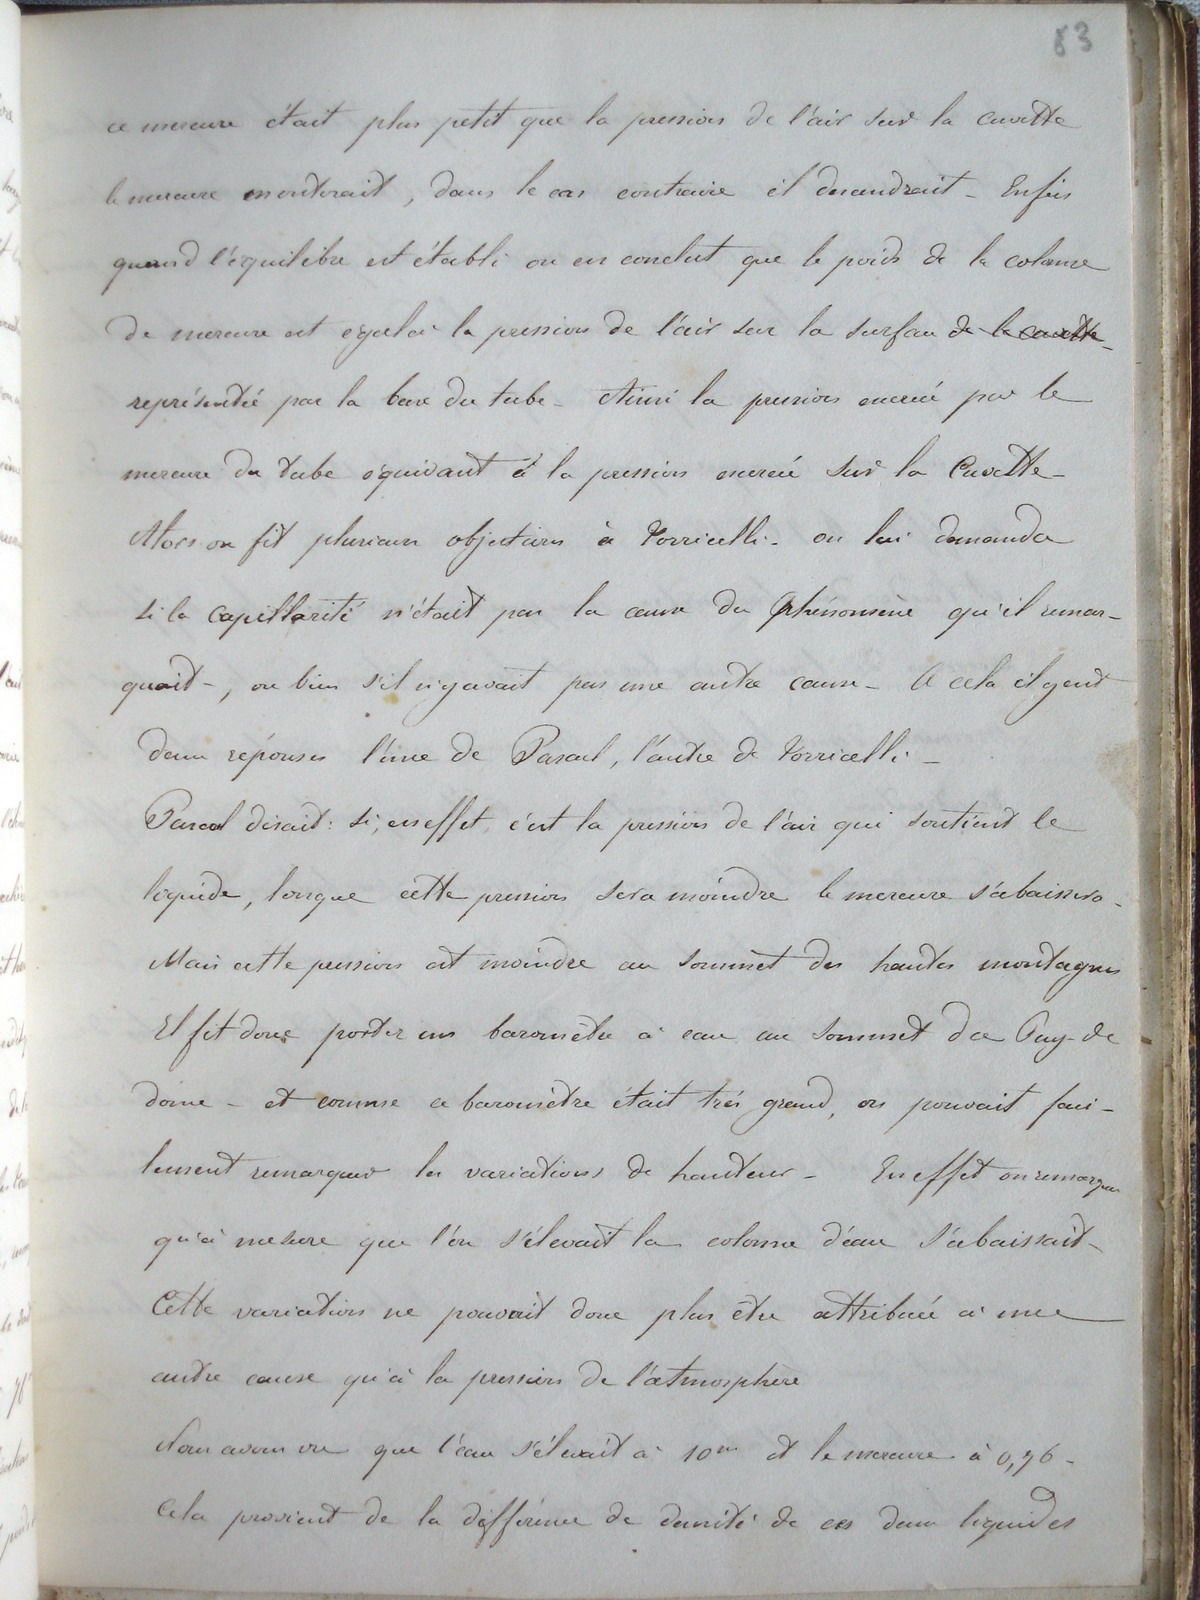 83
ce mercure était plus petit que la pression de l'air sur la cuvette
le mercure monterait, dans le cas contraire il descendrait - Enfin
quand l'équilibre est établi on en conclut que le poids de la colonne
de mercure est égal à la pression de l'air sur la surface de la cuvette
représentée par la base du tube - Ainsi la pression exercée par le
mercure du tube équivaut à la pression exercée sur la Cuvette -
Alors on fit plusieurs objections à Torricelli - on lui demanda
si la capillarité n'était pas la cause du Phénomène qu'il remar-
quait -, ou bien s'il n'y avait pas une autre cause - A cela il y eut
deux réponses l'une de Pascal, l'autre de Torricelli -
Pascal disait : si, en effet, c'est la pression de l'air qui soutient le
liquide, lorsque cette pression sera moindre le mercure s'abaissera -
Mais cette pression est moindre au sommet des hautes montagnes
Il fit donc porter un baromètre à eau au sommet du Puy-de
dôme - et comme ce baromètre était très grand, on pouvait faci-
lement remarquer les variations de hauteur - En effet on remarqua
qu'à mesure que l'on s'élevait la colonne d'eau s'abaissait -
Cette variation ne pouvait donc plus être attribuée à une
autre cause qu'à la pression de l'atmosphère
Nous avons vu que l'eau s'élevait à 10m et le mercure à 0,76 -
Cela provient de la différence de densité de ces deux liquides